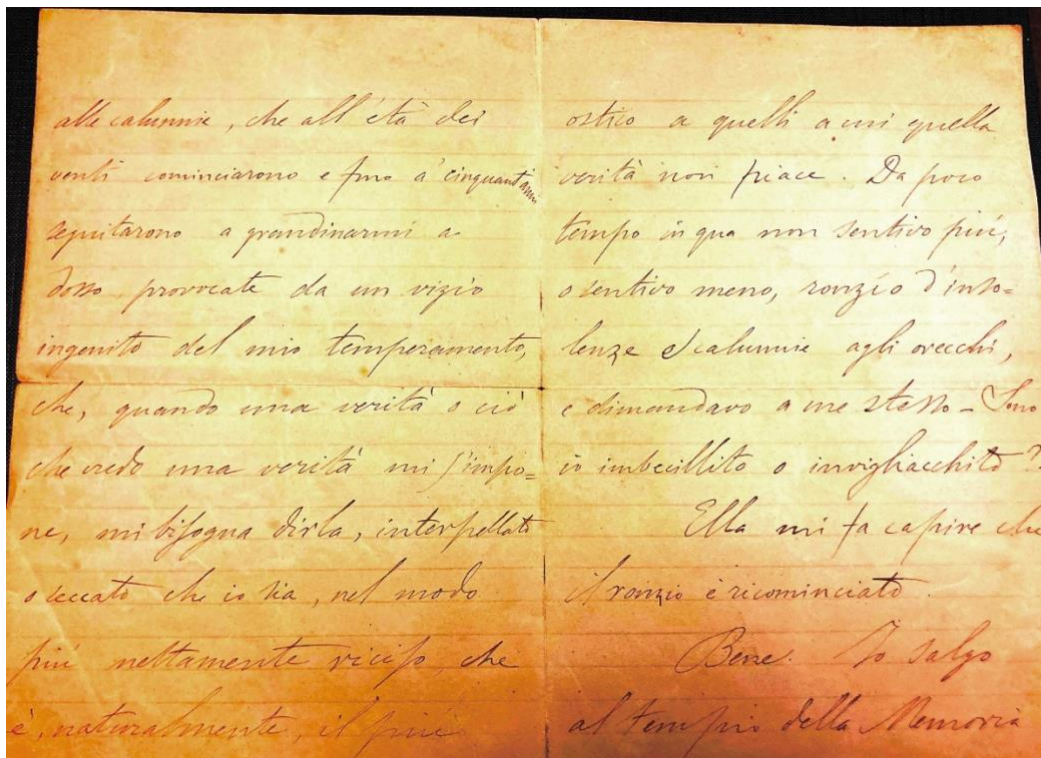 alle calunnie, che all'età dei
venti cominciarono e fino a' cinquant'anni
seguitarono a grandinarmi a
dosso, provocate da un vizio
ingenito del mio temperamento,
che, quando una verità o ciò
che credo una verità mi s'impo=
ne, mi bisogna dirla, interpellato
o seccato che io sia, nel modo
più nettamente riciso, che
è, naturalmente, il più
ostico a quelli a cui quella
verità non piace. Da poco
tempo in qua non sentivo più,
o sentivo meno, ronzío d'inso=
lenze e calunnie agli orecchi,
e dimandavo a me stesso – Sono
io imbecillito o invigliacchito?
Ella mi fa capire che
il ronzio è ricominciato.
Bene. Io salgo
al tempio della Memoria